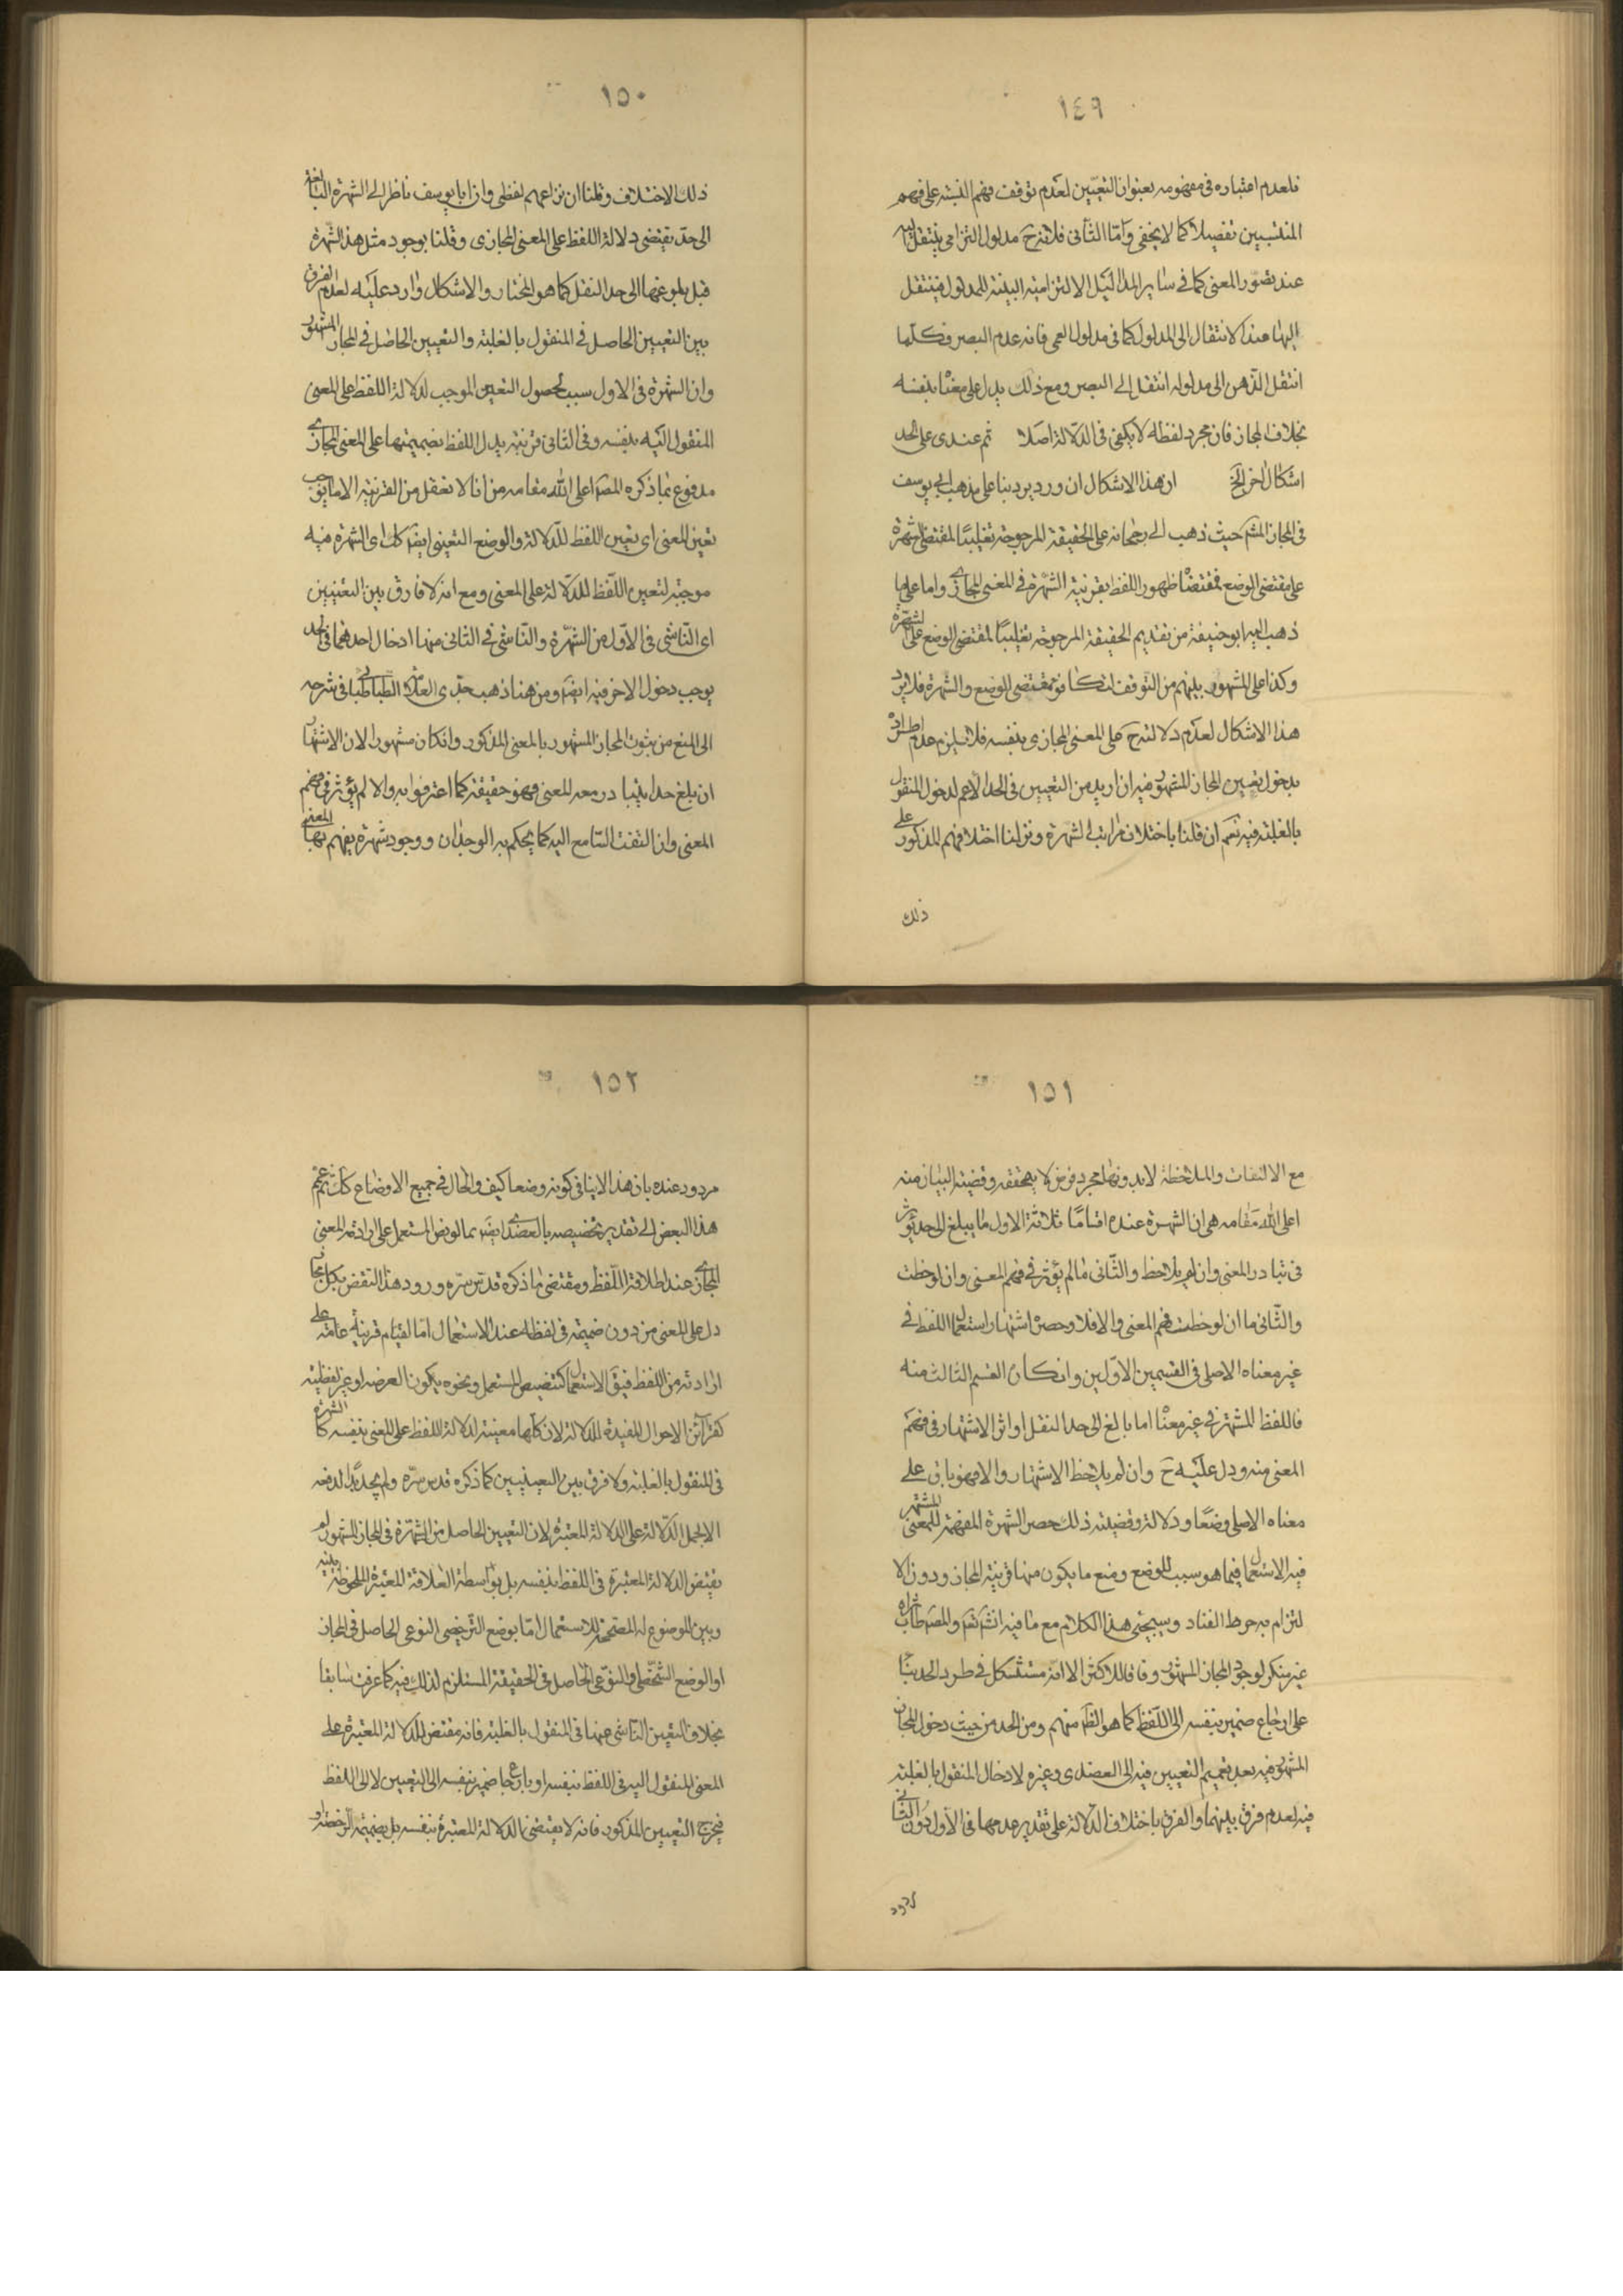 ١٤٩
فلعدم اعتباره فى مفهومه بعنوان التعيين لعدم توقف فهم النسبة على فهم
المنتسبين تفصيلا كما لا يخفى واما الثانى فلانه ح مدلول التزامى ينتقل اليه
عند تصور المعنى كما فى ساير المداليل الالتزامية البينة للمدلول فينتقل
اليها عند الانتقال الى المدلول كما فى مدلول العمى فانه عدم البصر فكلما
انتقل الذهن الى مدلوله انتقل الى البصر ومع ذلك يدل على معناه بنفسه
بخلاف المجاز فان مجرد لفظه لا يكفى فى الدلالة اصلا ثم عندى على الحد
اشكال اخر الخ ان هذا الاشكال ان ورد يرد بناء على مذهب ابى يوسف
فى المجاز المشهور حيث ذهب الى رجحانه على الحقيقة المرجوحة تغليبا لمقتضى الشهرة
على مقتضى الوضع فمقتضاه ظهور اللفظ بقرينة الشهرة فى المعنى المجازى واما على ما
ذهب اليه ابو حنيفة من تقديم الحقيقة المرجوحة تغليبا لمقتضى الوضع على الشهرة
وكذا على المشهور بينهم من التوقف لتكافؤ مقتضى الوضع والشهرة فلا يرد
هذا الاشكال لعدم دلالته ح على المعنى المجازى بنفسه فلا يلزم عدم اطراده
بدخول تعيين المجاز المشهور فيه ان اريد من التعيين فى الحد الاعم لدخول المنقول
بالغلبة فيه نعم ان قلنا باختلاف مراتب الشهرة ونزلنا اختلافهم المذكور على
ذلك
١٥٠
ذلك الاختلاف وقلنا ان نزاعهم لفظى وان ابا يوسف ناظر الى الشهرة البالغة
الى حد يقتضى دلالة اللفظ على المعنى المجازى وقلنا بوجود مثل هذه الشهرة
قبل بلوغها الى حد النقل كما هو المختار والاشكال وارد عليه لعدم الفرق
بين التعيين الحاصل فى المنقول بالغلبة والتعيين الحاصل فى المجاز المشهور
وان الشهرة فى الاول سبب لحصول التعين الموجب لدلالة اللفظ على المعنى
المنقول اليه بنفسه وفى الثانى قرينة يدل اللفظ بضميمتها على المعنى المجازى
مدفوع بما ذكره المصه اعلى الله مقامه من انا لا نعقل من القرينة الا ما يوجب
تعين المعنى اى تعين اللفظ للدلالة والوضع التعينى ايضا كك اى الشهرة فيه
موجبة لتعين اللفظ للدلالة على المعنى ومع انه لا فارق بين التعينين
اى الناشى فى الاول من الشهرة والناشى فى الثانى منها ادخال احدهما فى الحد
يوجب دخول الاخر فيه ايضا ومن هنا ذهب جدى العلامة الطباطبائى فى شرحه
الى المنع من ثبوت المجاز المشهور بالمعنى المذكور وان كان مشهورا لان الاشتهار
ان بلغ حدا يتبادر معه المعنى فهو حقيقة كما اعترفوا به والا لم يؤثر فى فهم
المعنى وان التفت السامع اليه كما يحكم به الوجدان ووجود شهرة يفهم بها المعنى
١٥١
مع الالتفات والملاحظة لا بدونها مجرد فرض لا يتحققه وقضية البيان منه
اعلى الله مقامه هى ان الشهرة عنده اقساما ثلاثة الاول ما يبلغ الى حد يؤثر
فى تبادر المعنى وان لم يلاحظ والثانى ما لم يؤثر فى فهم المعنى وان لوحظت
والثانى ما ان لوحظت فهم المعنى والا فلا وحصره اشتهار استعمال اللفظ فى
غير معناه الاصلى فى القسمين الاولين وانكار القسم الثالث منه
فاللفظ المشتهر فى غير معناه اما بالغ الى حد النقل او اثر الاشتهار فى فهم
المعنى منه ودل عليه ح وان لم يلاحظ الاشتهار والا فهو باق على
معناه الاصلى وضعا ودلالة وقضيته ذلك حصر الشهرة المفهمة للمعنى المشتهر
فيه الاستعمال فيما هو سبب للوضع ومنع ما يكون منها قرينة المجاز ودون الا
لتزام به خرط القتاد وسيجئ هذا الكلام مع ما فيه انش تعم والمصه طاب ثراه
غير منكر لوجود المجاز المشهور وفاقا للاكثر الا انه مستشكل فى طرد الحد بناء
على ارجاع ضمير بنفسه الى اللفظ كما هو الظ منهم ومن الحد من حيث دخول المجاز
المشهور فيه بعد تعميم التعيين فيه الى العضدى وغيره لادخال المنقول بالغلبة
فيه لعدم فرق بينهما والفرق باختلاف الدلالة على تقدير عدمها فى الاول دون الثانى
مردود
١٥٢
مردود عنده بان هذا لا ينافى كونه وضعا كيف والحال فى جميع الاوضاع كك ثم عمم
هذا البعض الى تقدير تخصيصه بالعضدى ايضا بما لو نص المستعمل على ارادته المعنى
المجازى عند اطلاقه اللفظ ومقتضى ما ذكره قدس سره ورود هذا النقض بكل مجاز
دل على المعنى من دون ضميمة فى لفظه عند الاستعمال اما لقيام قرينة عامة على
ارادته من اللفظ فيق الاستعمال كتنصيص المستعمل ونحوه يكون العرضه او غير لفظية
كقرائن الاحوال المفيدة للدلالة لان كلها معينة لدلالة اللفظ على المعنى بنفسه كالشهرة
فى المنقول بالغلبة ولا فرق بين التعيينين كما ذكره قدس سره ولم يجد بدا لدفعه
الا بحمل الدلالة على الدلالة المعتبرة لان التعيين الحاصل من الشهرة فى المجاز المشهور لم
يقتض الدلالة المعتبرة فى اللفظ بنفسه بل بواسطة العلاقة المعتبرة الملحوظة بينه
وبين الموضوع له المصححة للاستعمال اما بوضع الترخيصى النوعى الحاصل فى المجاز
او الوضع الشخصى او النوعى الحاصل فى الحقيقة المستلزم لذلك فيه كما عرفت سابقا
بخلاف التعيين الناشى عنها فى المنقول بالغلبة فانه مقتض للدلالة المعتبرة على
المعنى المنقول اليه فى اللفظ بنفسه او بارجاع ضمير بنفسه الى التعيين لا الى اللفظ
فيخرج التعيين المذكور فانه لا يقتضى الدلالة المعتبرة بنفسه بل بضميمة الرخصة او